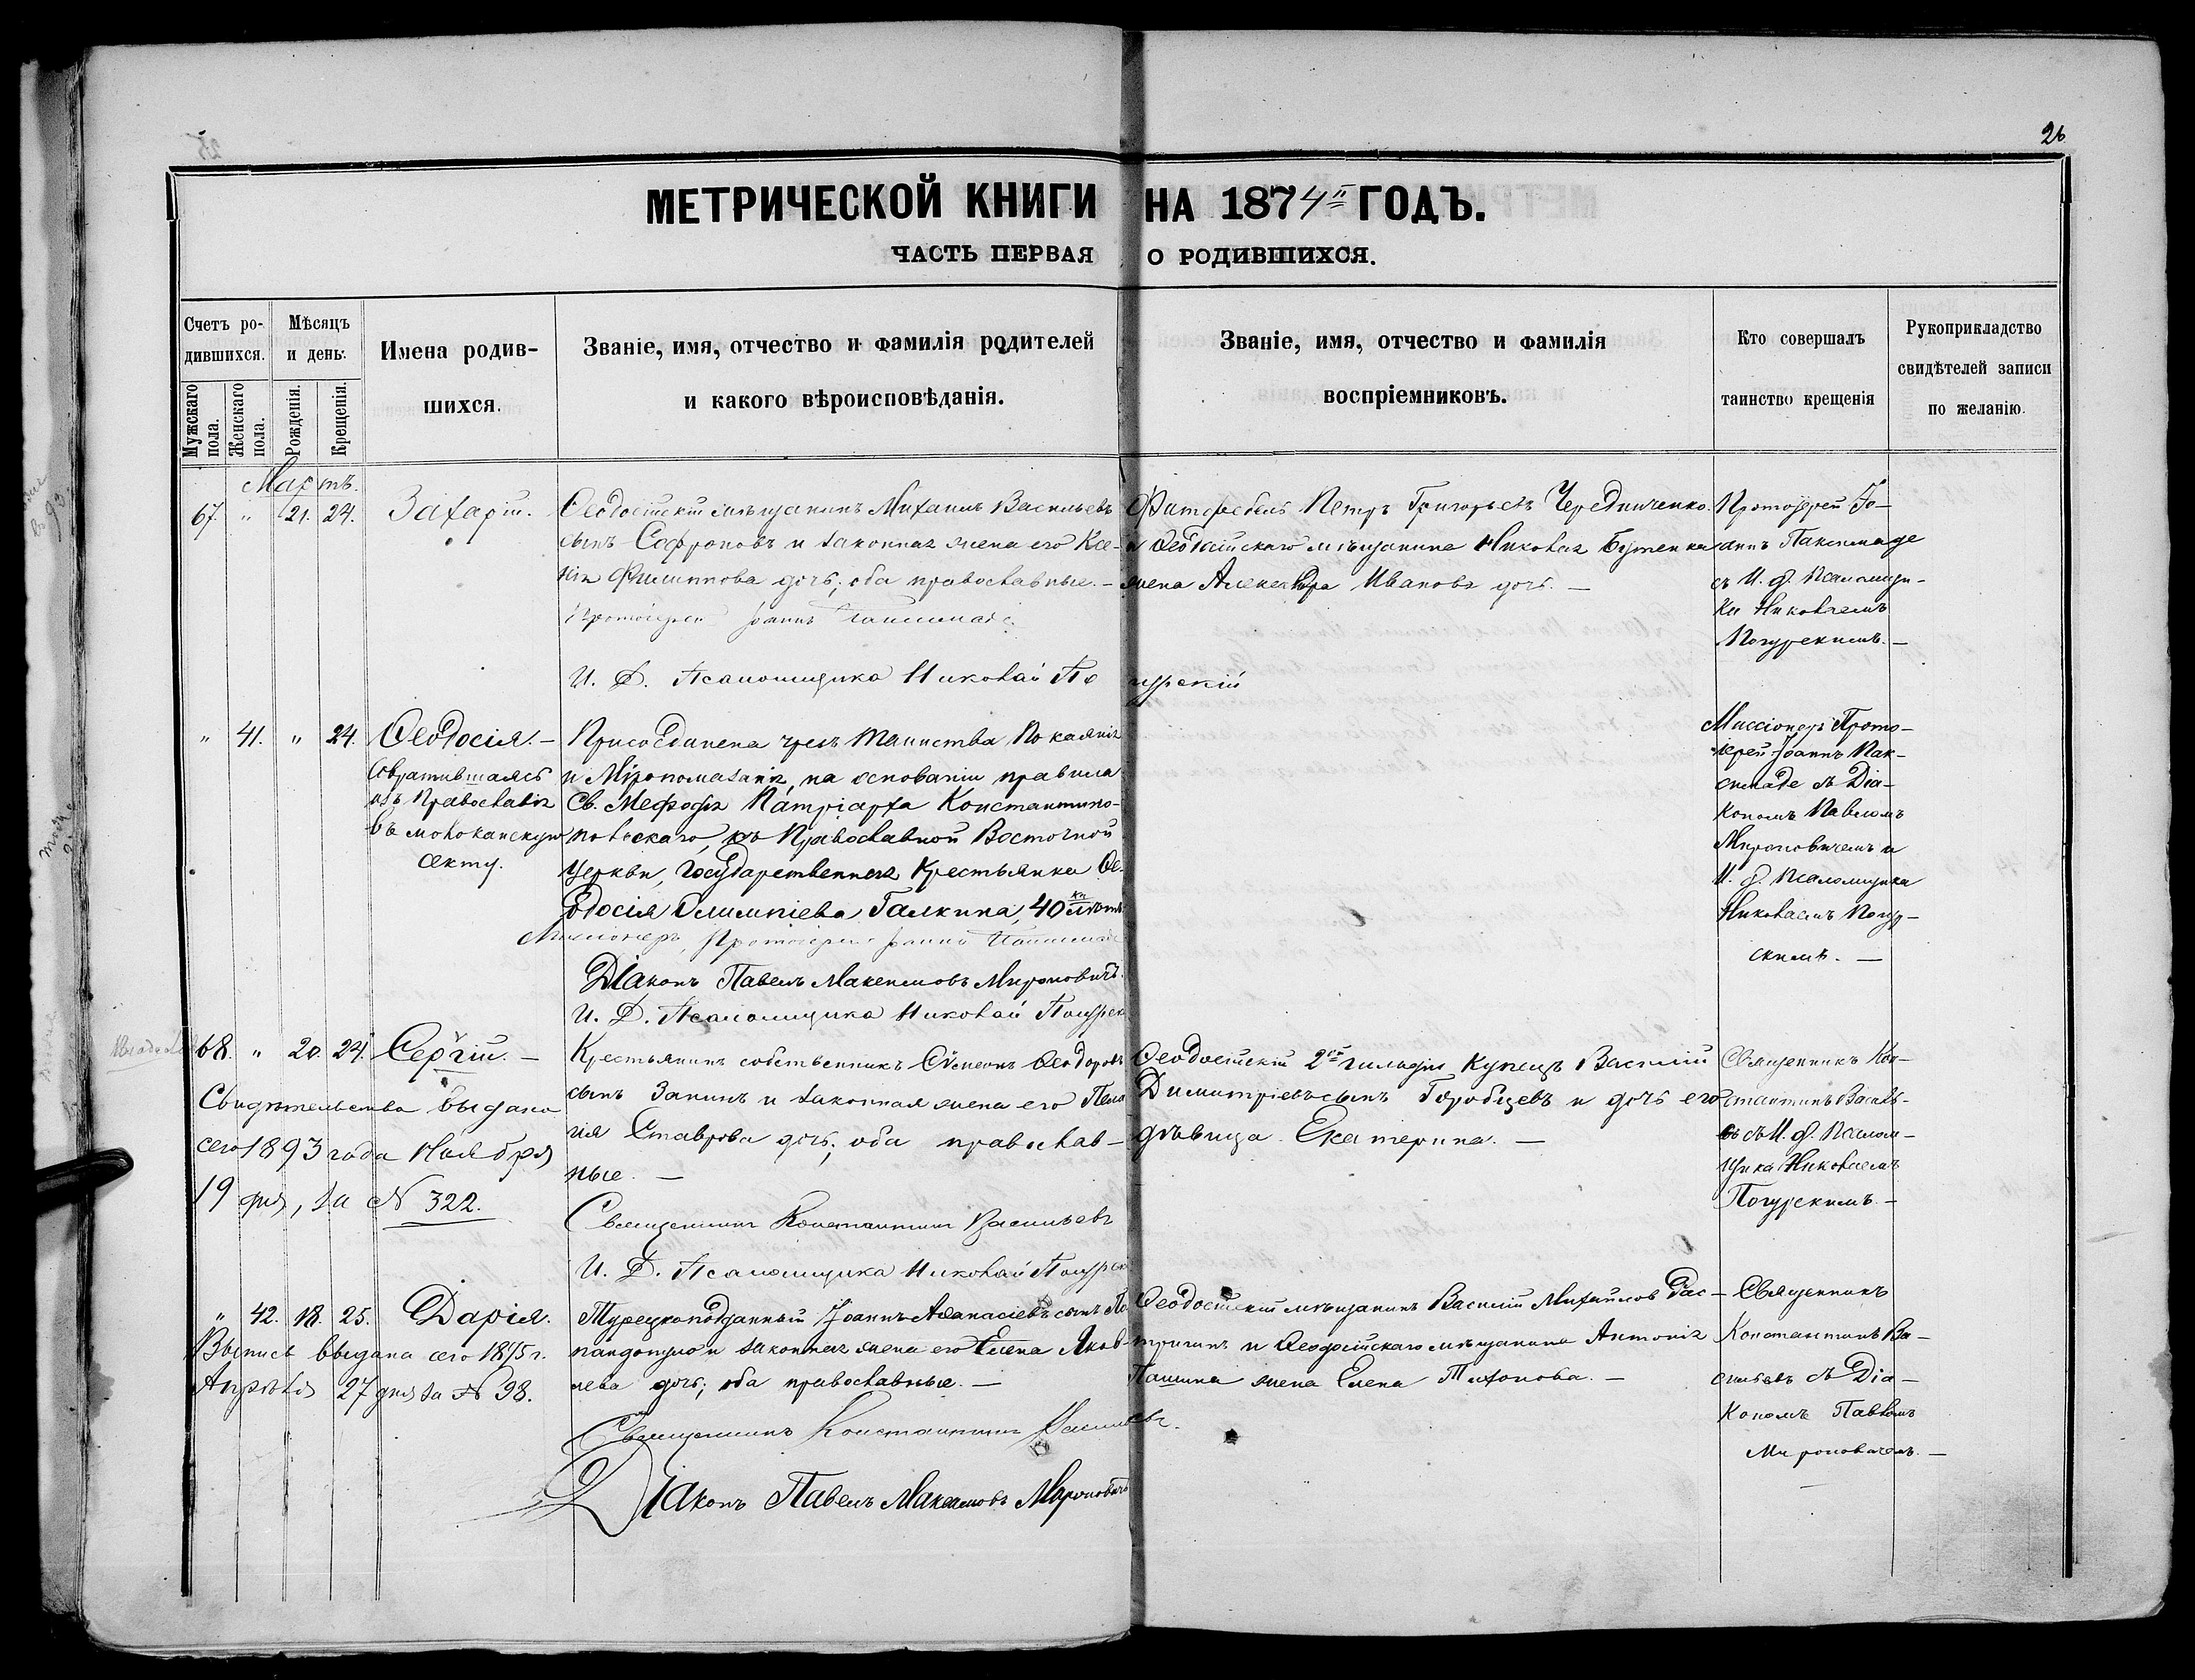 26
МЕТРИЧЕСКОЙ КНИГИ НА 1874й ГОДЪ.
ЧАСТЬ ПЕРВАЯ О РОДИВШИХСЯ.
Счетъ ро-
дившихся.
Мужскаго пола.
Женскаго пола.
Мѣсяцъ
и день.
Рожденія.
Крещенія.
Имена родив-
шихся.
Званіе, имя, отчество и фамилія родителей
и какого вѣроисповѣданія.
Званіе, имя, отчество и фамилія
воспріемниковъ.
Кто совершалъ
таинство крещенія
Рукоприкладство
свидѣтелей записи
по желанію.
Мартъ.
67. " 21. 24. Захарій.
Ѳеодосійскій мѣщанинъ Михаилъ Васильевъ
сынъ Сафроновъ и законная жена его Ксе-
нія Филиппова дочь; оба православные. –
Протоіерей Іоаннъ
И. Д. Псаломщика Николай Погурскій
Петръ Григорьевъ Чередниченко
и Ѳеодосійскаго мѣщанина Николая Бутенка
жена Александра Иванова дочь. –
Протоіерей Іо-
аннъ Паксимаде
съ И. д. Псаломщи-
ка Николаемъ
Погурскимъ. –
" 41. " 24. Ѳеодосія. –
Совратившаяся
изъ Православія
въ молоканскую
секту.
Присоединена чрезъ таинства Покаянія
и Мѵропомазанія, на основаніи правила
Св. Меѳодія Патріарха Константино-
польскаго, къ Православной Восточной
Церкви, Государственная Крестьянка Ѳе-
одосія Олимпіева Галкина, 40 лѣтъ
Миссіонеръ, Протоіерей Іоаннъ
Діаконъ Павелъ Максимовъ Мироновичъ.
И. Д. Псаломщика Николай Погурск
Миссіонеръ Прото-
іерей Іоаннъ Пак-
симаде съ Діа-
кономъ Павломъ
Мироновичемъ и
И. д. Псаломщика
Николаемъ Погур-
скимъ. –
68. " 20. 24. Сергій. –
Свидѣтельство выдано
сего 1893 года Ноября
19 дня, за № 322.
Крестьянинъ собственникъ Сѵмеонъ Ѳеодоровъ
сынъ Занинъ и законная жена его Пела
гія Ставрова дочь; оба православ-
ные. –
Священникъ Константинъ Васильевъ
И. Д. Псаломщика Николай Погурскі
Ѳеодосійскій 2й гильдіи Купецъ Василій
Димитріевъ сынъ Горобцевъ и дочь его
дѣвица Екатерина. –
Священникъ Кон-
стантинъ Василь-
въ съ И. д. Псалом-
щика Николаемъ
Погурскимъ. –
" 42. 18. 25. Дарія.
Выпись выдана сего 1875 г.
Апрѣля 27 дня за № 98.
Турецкоподданный Іоаннъ Аѳанасіевъ сынъ Па
пандопуло и законная жена его Елена Яков-
лева дочь; оба православные. –
Священникъ Константинъ Васильевъ.
Діаконъ Павелъ Максимовъ Мироновичъ
Ѳеодосійскій мѣщанинъ Василій Михаиловъ Рас-
и Ѳеодосійскаго мѣщанина Антонія
Пашина жена Елена Тихонова. –
Священникъ
Константинъ Ва-
сильевъ съ Діа-
кономъ Павломъ
Мироновичемъ. –